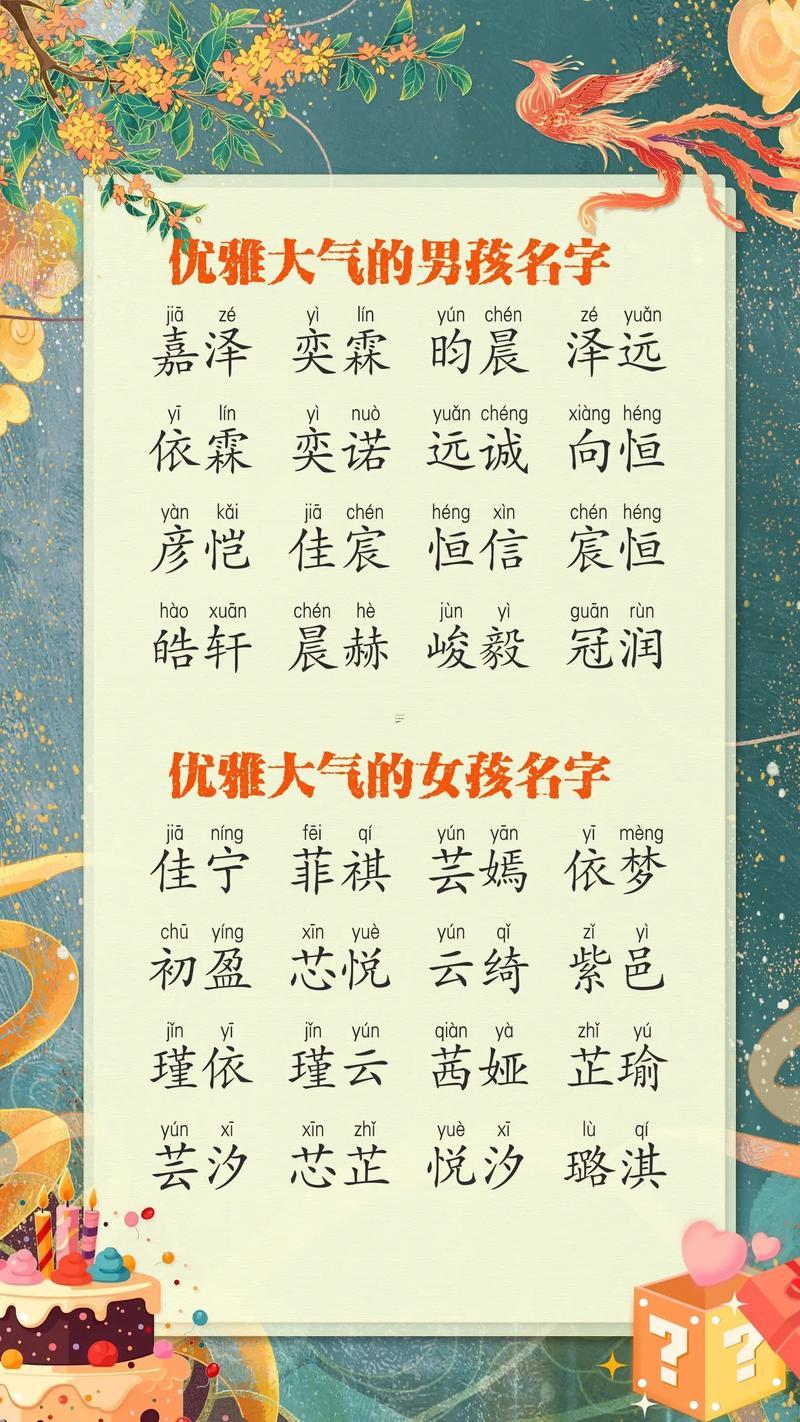 优雅大气的男孩名字
jiā zé yì lín yún chén zé yuǎn
嘉泽 奕霖 昀晨 泽远
yī lín yì nuò yuǎn chéng xiàng héng
依霖 奕诺 远诚 向恒
yàn kǎi jiā chén héng xìn chén héng
彦恺 佳宸 恒信 宸恒
hào xuān chén hè jùn yì guān rùn
皓轩 晨赫 峻毅 冠润
优雅大气的女孩名字
jiā níng fēi qí yún yān yī mèng
佳宁 菲祺 芸嫣 依梦
chū yíng xīn yuè yún qǐ zǐ yì
初盈 芯悦 云绮 紫邑
jǐn yī jǐn yún qiàn yà zhǐ yú
瑾依 瑾云 茜娅 芷瑜
yún xī xīn zhǐ yuè xī lù qí
芸汐 芯芷 悦汐 璐淇
? ?